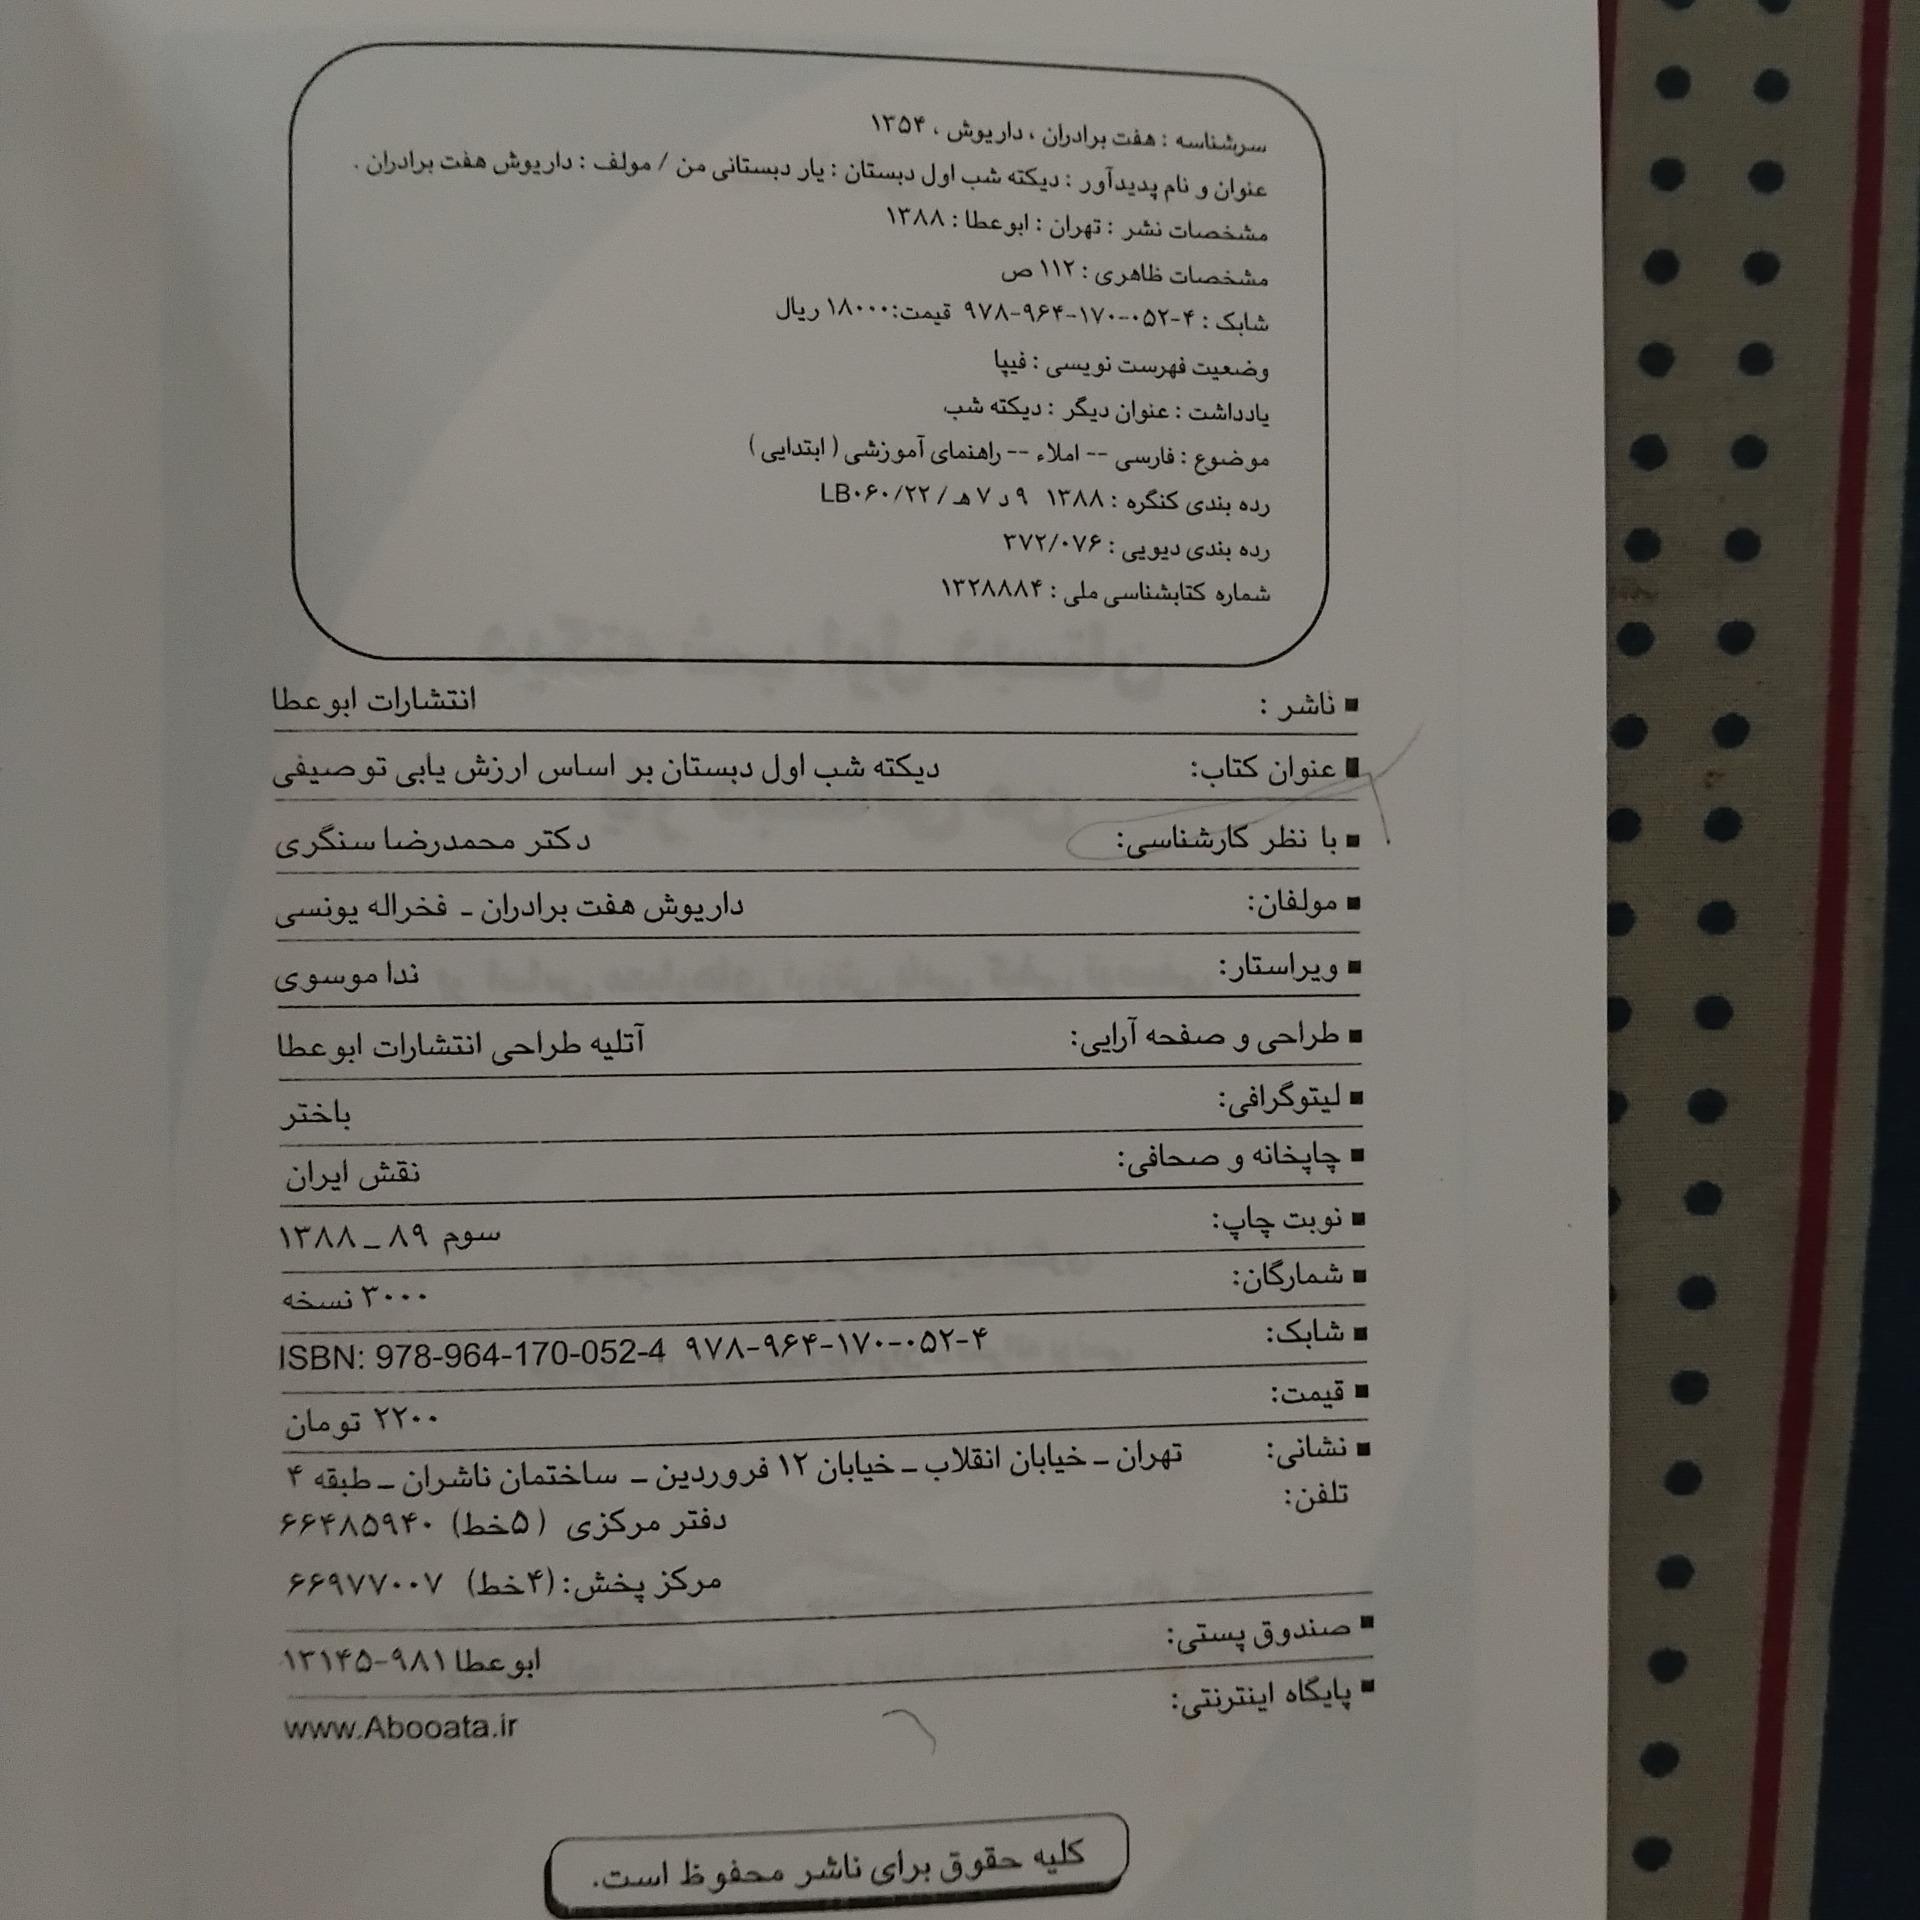 سرشناسه : هفت برادران ، داریوش ، ۱۳۵۴
عنوان و نام پدیدآور : دیکته شب اول دبستان : یار دبستانی من / مولف : داریوش هفت برادران .
مشخصات نشر : تهران : ابوعطا : ۱۳۸۸
مشخصات ظاهری : ۱۱۲ ص
شابک : ۴-۰۵۲-۱۷۰-۹۶۴-۹۷۸ قیمت:۱۸۰۰۰ ریال
وضعیت فهرست نویسی : فیپا
یادداشت : عنوان دیگر : دیکته شب
موضوع : فارسی -- املاء -- راهنمای آموزشی ( ابتدایی )
رده بندی کنگره : ۱۳۸۸ ۹ د ۷ هـ / ۲۲/LB۰۶۰
رده بندی دیویی : ۳۷۲/۰۷۶
شماره کتابشناسی ملی : ۱۳۲۸۸۸۴
ناشر : انتشارات ابوعطا
عنوان کتاب: دیکته شب اول دبستان بر اساس ارزش یابی توصیفی
با نظر کارشناسی: دکتر محمدرضا سنگری
مولفان: داریوش هفت برادران ـ فخراله یونسی
ویراستار: ندا موسوی
طراحی و صفحه آرایی: آتلیه طراحی انتشارات ابوعطا
لیتوگرافی: باختر
چاپخانه و صحافی: نقش ایران
نوبت چاپ: سوم ۸۹ ـ ۱۳۸۸
شمارگان: ۳۰۰۰ نسخه
شابک: ۹۷۸-۹۶۴-۱۷۰-۰۵۲-۴ ISBN: 978-964-170-052-4
قیمت: ۲۲۰۰ تومان
نشانی: تهران ـ خیابان انقلاب ـ خیابان ۱۲ فروردین ـ ساختمان ناشران ـ طبقه ۴
تلفن: دفتر مرکزی (۵خط) ۶۶۴۸۵۹۴۰
مرکز پخش: (۴خط) ۶۶۹۷۷۰۰۷
صندوق پستی: ابوعطا ۹۸۱-۱۳۱۴۵
پایگاه اینترنتی: www.Abooata.ir
کلیه حقوق برای ناشر محفوظ است.